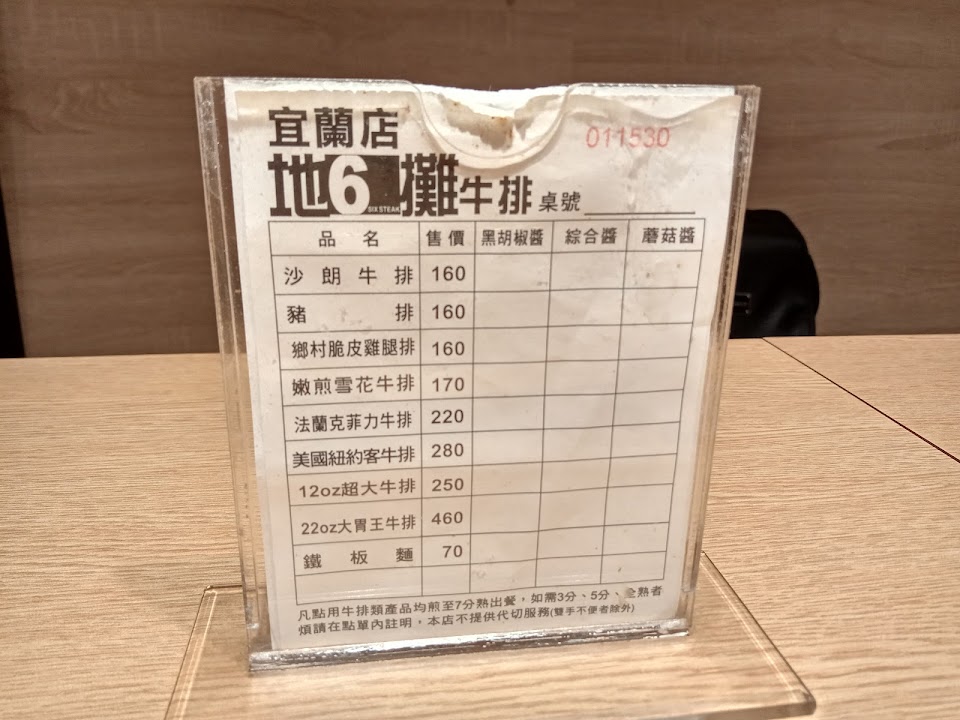 宜蘭店
011530
地6攤牛排 桌號
SIX STEAK
品名 售價 黑胡椒醬 綜合醬 蘑菇醬
沙朗牛排 160
豬排 160
鄉村脆皮雞腿排 160
嫩煎雪花牛排 170
法蘭克菲力牛排 220
美國紐約客牛排 280
12oz超大牛排 250
22oz大胃王牛排 460
鐵板麵 70
凡點用牛排類產品均煎至7分熟出餐，如需3分、5分、全熟者
煩請在點單內註明，本店不提供代切服務(雙手不便者除外)